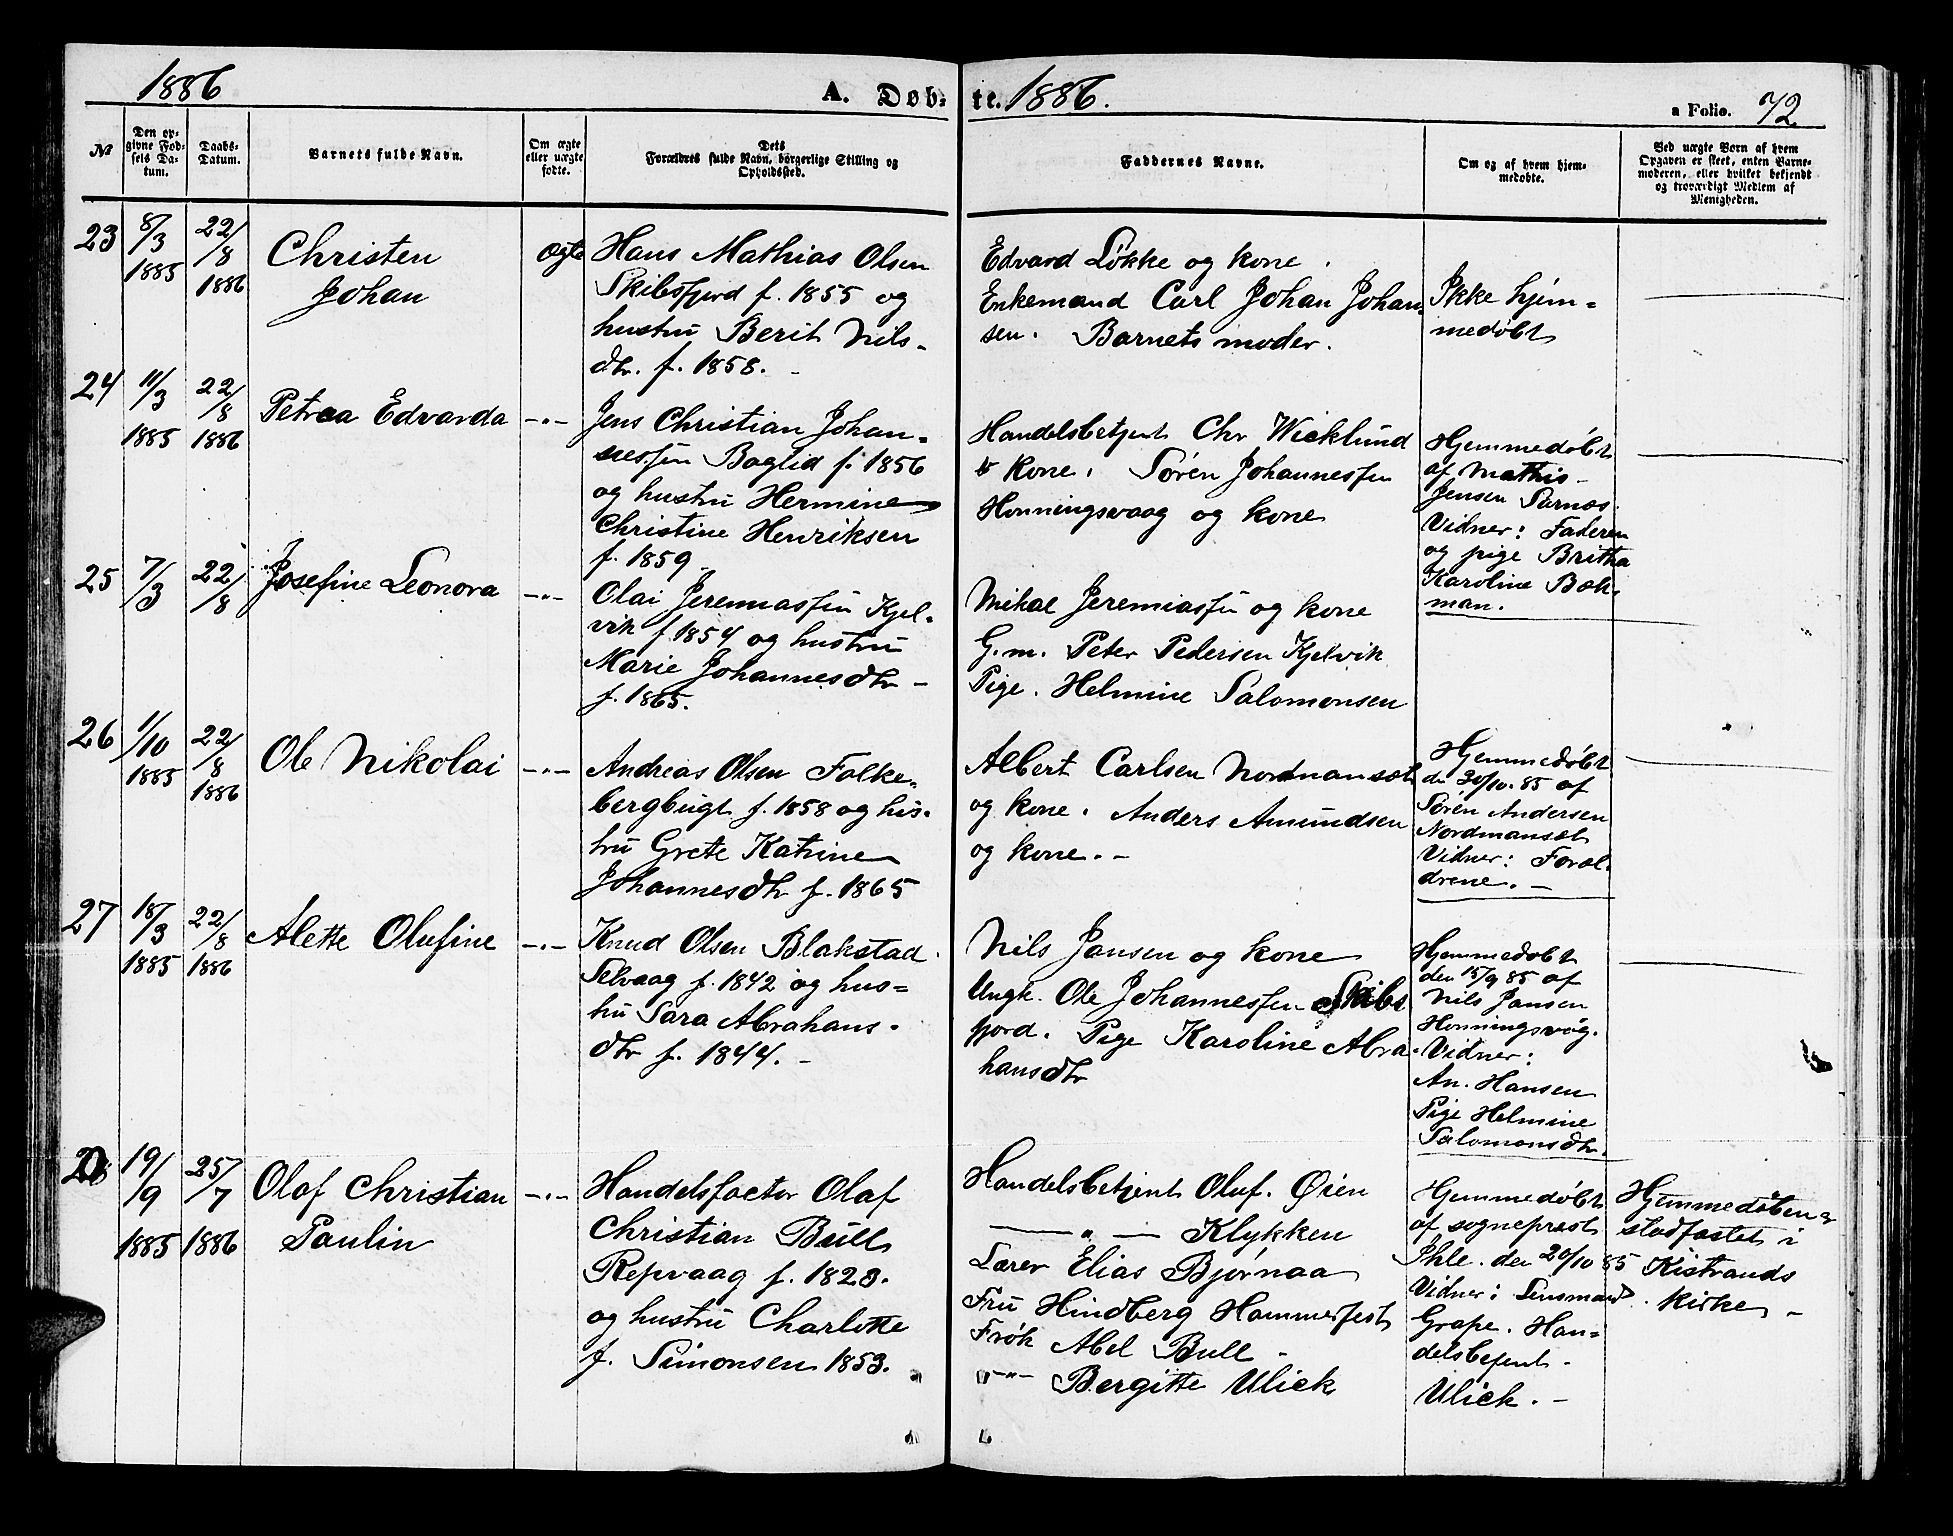 1886
A. Døb-
te. 1886.
a Folio. 72
№
Den op-
givne Fød-
sels Da-
tum.
Daabs-
Datum.
Barnets fulde Navn.
Om ægte
eller uægte
fødte.
Dets
Forældres fulde Navn, borgerlige Stilling og
Opholdssted.
Faddernes Navne.
Om og af hvem hjem-
medøbte.
Ved uægte Børn af hvem
Opgaven er skeet, enten Barne-
moderen, eller hvilket bekjendt
og troværdigt Medlem af
Menigheden.
23
8/3
1885
22/8
1886
Christen
Johan
ægte
Hans Mathias Olsen
Skibsfjord f. 1855 og
hustru Berit Nils-
dtr. f. 1858. -
Edvard Løkke og kone.
Enkemand Carl Johan Johan-
sen. Barnets moder.
Ikke hjem-
medøbt
24
11/3
1885
22/8
1886
Petraa Edvarda
-"-
Jens Christian Johan-
nessen Boglid f. 1856
og hustru Hermine
Christine Henriksen
f. 1859.
Handelsbetjent Chr Wicklund
& Kone. Søren Johannessen
Honningsvaag og kone
Hjemmedøbt
af Mathis
Jensen Sarnæs.
Vidner: Faderen
og pige Britha
Karoline Bæk-
man.
25
7/3
22/8
Josefine Leonora
-"-
Olai Jeremiassen Kjel-
vik f. 1854 og hustru
Marie Johannesdtr -
f. 1865.
Mikal Jeremiassen og kone
G.m. Peter Pedersen Kjelvik
Pige. Helmine Salomonsen
26
1/10
1885
22/8
1886
Ole Nikolai
-"-
Andreas Olsen Falke-
bergbugt f. 1858 og hus-
tru Grete Katrine
Johannesdtr f. 1865
Albert Carlsen Nordmanset
og kone. Anders Amundsen
og kone. -
Hjemmedøbt
den 30/10.85 af
Søren Andersen
Nordmanset
Vidner: Foræl-
drene. -
27
18/3
1885
22/8
1886
Alette Olufine
-"-
Knud Olsen Blakstad
Selvaag f. 1842 og hus-
tru Sara Abrahams-
dtr f. 1844. -
Nils Jansen og kone
Ungk. Ole Johannessen Skibs
fjord. Pige Karoline Abra-
hamsdtr
Hjemmedøbt
den 15/9 85 af
Nils Jansen
Honningsvåg.
Vidner:
An. Hansen
Pige Helmine
Salomonsdtr.
28
19/9
1885
25/7
1886
Olaf Christian
Paulin
-"-
Handelsfactor Olaf
Christian Bull
Repvaag f. 1823.
og hustru Charlotte
f. Simonsen 1853.
Handelsbetjent Oluf. Øien
— " — Klykken
Lærer Elias Bjørnaa
Fru Hindberg Hammerfest
Frøk Abel Bull -
-"- Bergitte Ulick
Hjemmedøbt
af sogneprest
Ihle. den 20/10 85
Vidner: Lensmand
Grape. Han-
delsbetjent -
Ulick. -
Hjemmedøben er
stadfæstet i
Kistrands
kirke -